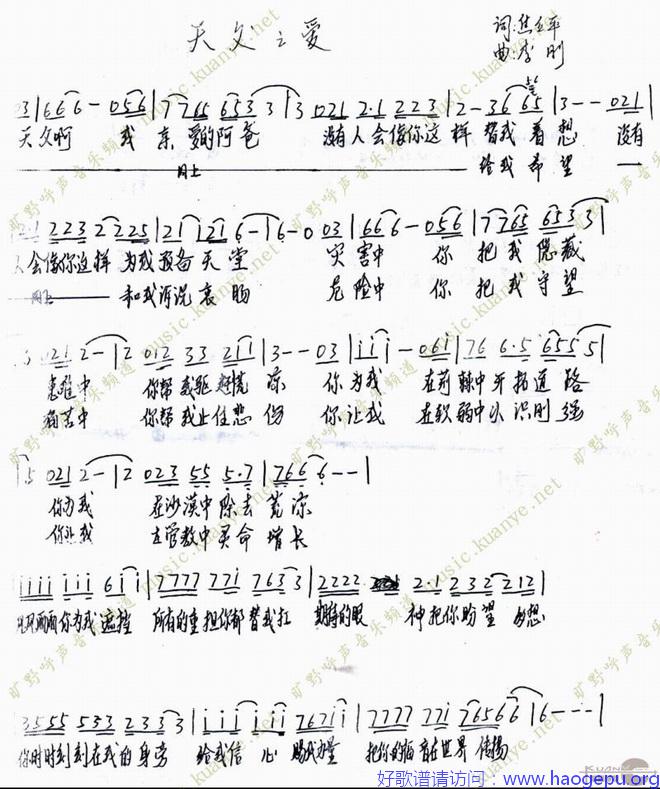 天父之爱
词:焦玉平
曲:李刚
03|666-056|7765 6533|3 021 2·1 223|2-36 65|3--021|
天父啊 我亲爱的阿爸 没有人会像你这样替我着想 没有
同上 给我希望 —
2·1 223 2225|21 i 21 6-|6-0 03|666-056|7765 6533|
人会像你这样为我预备天堂 灾害中 你把我隐藏
同上 和我 哀肠 危险中 你把我守望
021 2-|2 012 33 211|3--03|iii-06i|76 6·5 6555|
患难中 你帮我驱赶慌凉 你为我 在荆棘中开拓道路
痛苦中 你帮我止住悲伤 你让我 在软弱中认识刚强
|5 021 2-|2 023 55 5·7|766 6--|
你为我 在沙漠中除去荒凉
你让我 在管教中灵命增长
iiii iii 6ii|7777 77i 7633|2222 2·1 232 212|
你为我遮挡 所有的重担你都替我扛 期待的眼神把你盼望
3555 533 2333|iii iii 767ii|7777 77i 76566|6---|
你时时刻刻在我的身旁 给我信心 赐我力量 把你的福音在世界传扬
旷野呼声音乐频道 music.kuanye.net
好歌谱请访问：www.haogepu.org